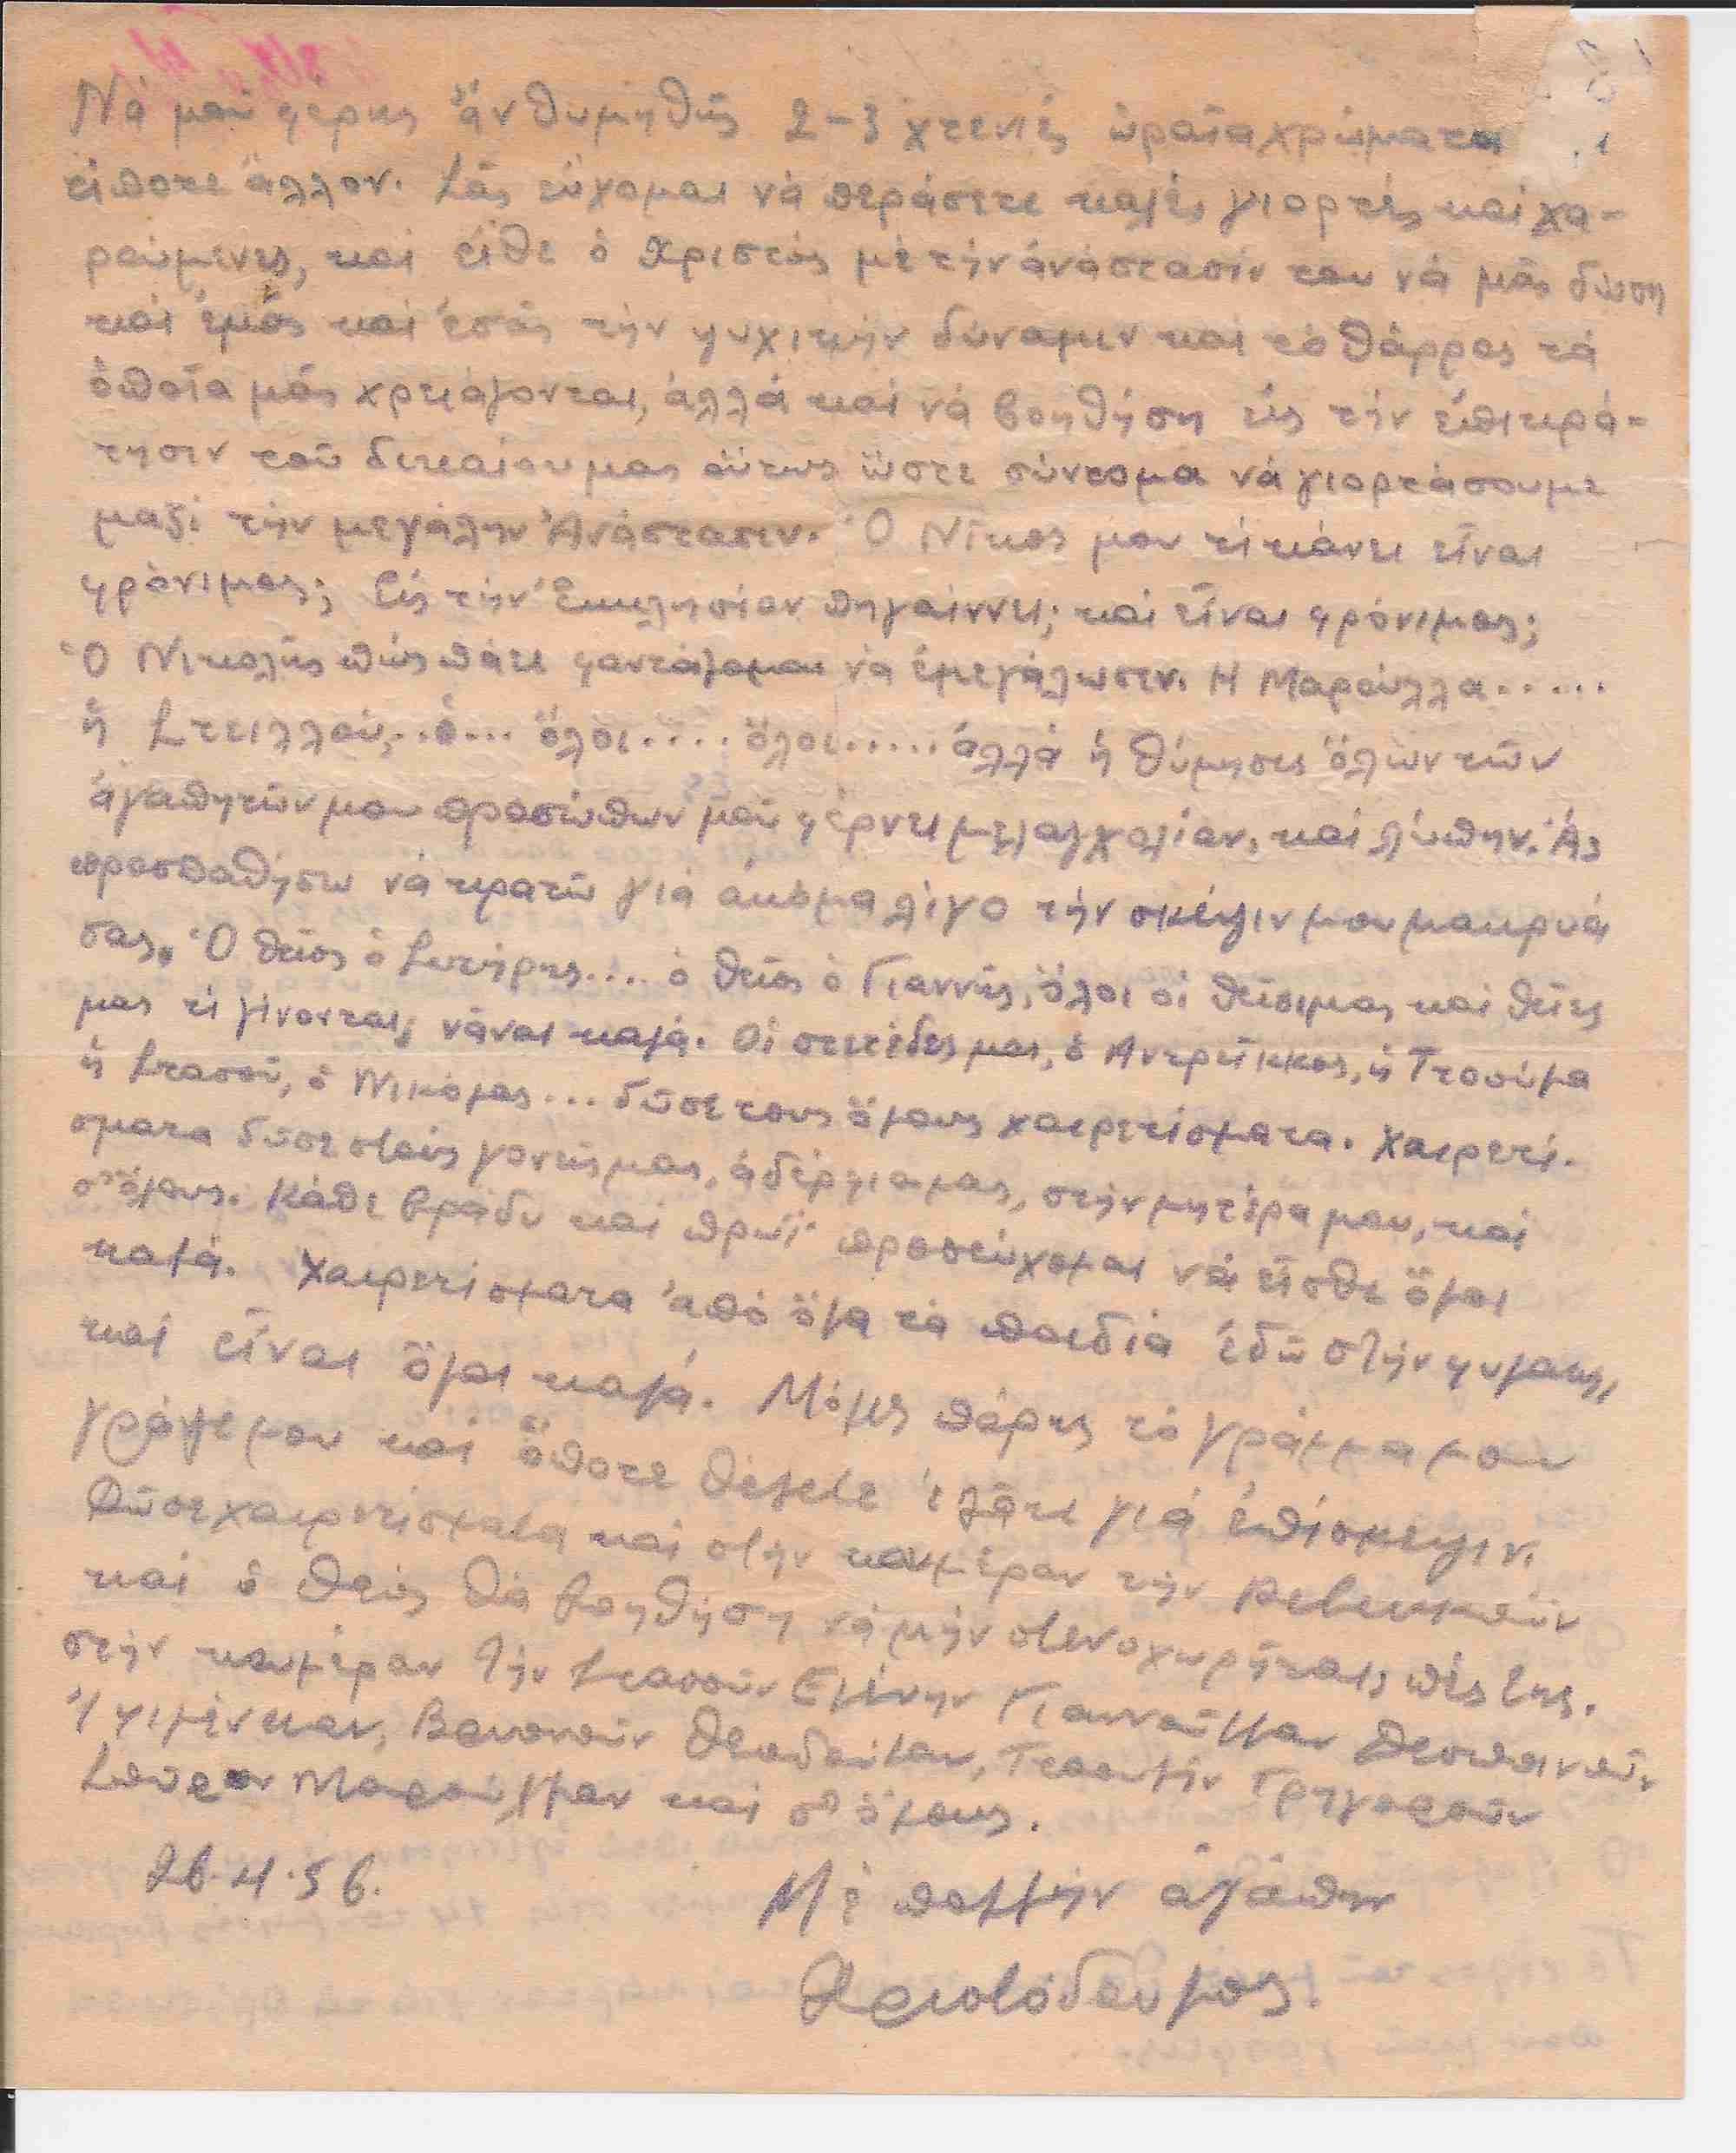 Νά μοῦ φέρῃς ἄν θυμηθῇς 2-3 χτενιές ὡραῖα χρώματα
τίποτε ἄλλον. Σᾶς εὔχομαι νά περάσετε καλές γιορτές καί χα-
ρούμενες, καί εἴθε ὁ Χριστός μέ τήν ἀνάστασίν του νά μᾶς δώσῃ
καί ἐμᾶς καί ἐσᾶς τήν ψυχικήν δύναμιν καί τό θάρρος τά
ὁποῖα μᾶς χρειάζονται, ἀλλά καί νά βοηθήσῃ εἰς τήν ἐπικρά-
τησιν τοῦ δικαίου μας οὕτως ὥστε σύντομα νά γιορτάσουμε
μαζί τήν μεγάλην Ἀνάστασιν. Ὁ Νῖκος μου τί κάνει εἶναι
φρόνιμος; Εἰς τήν Ἐκκλησίαν πηγαίννει; καί εἶναι φρόνιμος;
Ὁ Νικολῆς πῶς πάει φαντάζομαι νά ἐμεγάλωσεν. Η Μαρούλλα.....
ἡ Στειλλού,..ὁ... ὅλοι.... ὅλοι..... ἀλλά ἡ θύμησις ὅλων τῶν
ἀγαπητῶν μου προσώπων μοῦ φέρνει μελαγχολίαν, καί λύπην. Ἄς
προσπαθήσω νά κρατῶ γιά ἀκόμα λίγο τήν σκέψιν μου μακρυά
σας. Ὁ θεῖος ὁ Σωτήρης.... ὁ θεῖος ὁ Γιαννής, ὅλοι οἱ θεῖοι μας καί θεῖες
μας τί γίνονται; νἆναι καλά. Οἱ στετέδες μας, ὁ Αντρίκκος, ἡ Ττοούλα
ἡ Στασού, ὁ Νικόλας... δῶσε τους ὅλους χαιρετίσματα. Χαιρετί-
σματα δῶσε στούς γονεῖς μας, ἀδέρφια μας, στήν μητέρα μου, καί
σ' ὅλους. Κάθε βράδυ καί πρωΐ προσεύχομαι νά εἶσθε ὅλοι
καλά. Χαιρετίσματα ἀπό ὅλα τά παιδιά ἐδῶ στήν φυλακή,
καί εἶναι ὅλοι καλά. Μόλις πάρῃς τό γράμμα μου
γράψε μου καί ὅποτε θέλετε ἐλᾶτε γιά ἐπίσκεψιν.
Δῶσε χαιρετίσματα καί στήν κουμέραν τήν
καί ὁ θεός θά βοηθήσῃ νά μήν στενοχωρῆται, πές της.
στήν κουμέραν τήν Στασοῦν Ελένην Γιαννοῦλλαν
Θεοδούλαν, Γρηγοροῦν
Σπῦρον Μαρούλλαν καί σ' ὅλους.
26.4.56.
Μέ πολλήν ἀγάπην
Χριστόδουλος.